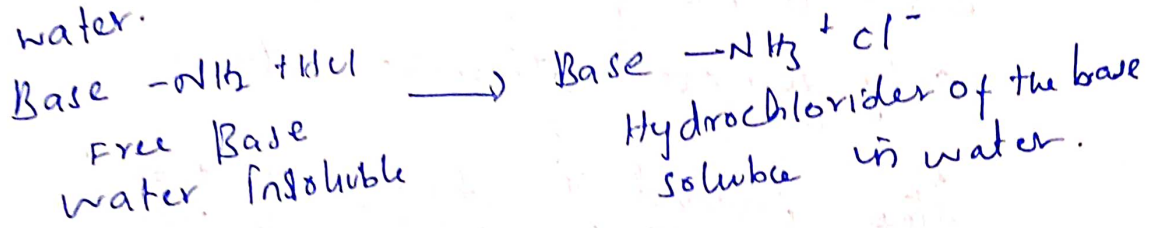 water.
Base -NH2 + HCl ⟶ Base -NH3⁺ Cl⁻
Free Base
water Insoluble
Hydrochlorides of the base
soluble in water.